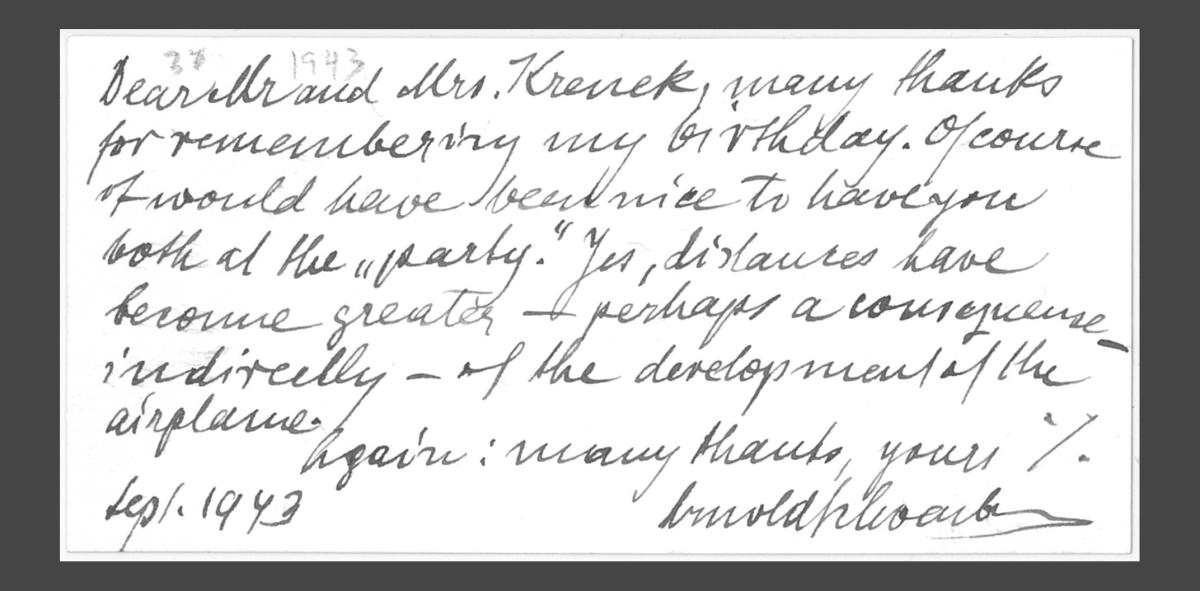 38 1943
Dear Mr and Mrs. Krenek, many thanks
for remembering my birthday. Of course
it would have been nice to have you
both at the „party.“ Yes, distances have
become greater – perhaps a consequense –
indirectly – of the development of the
airplane.
Again: many thanks, yours ./.
Sept. 1943 Arnold Schoenberg